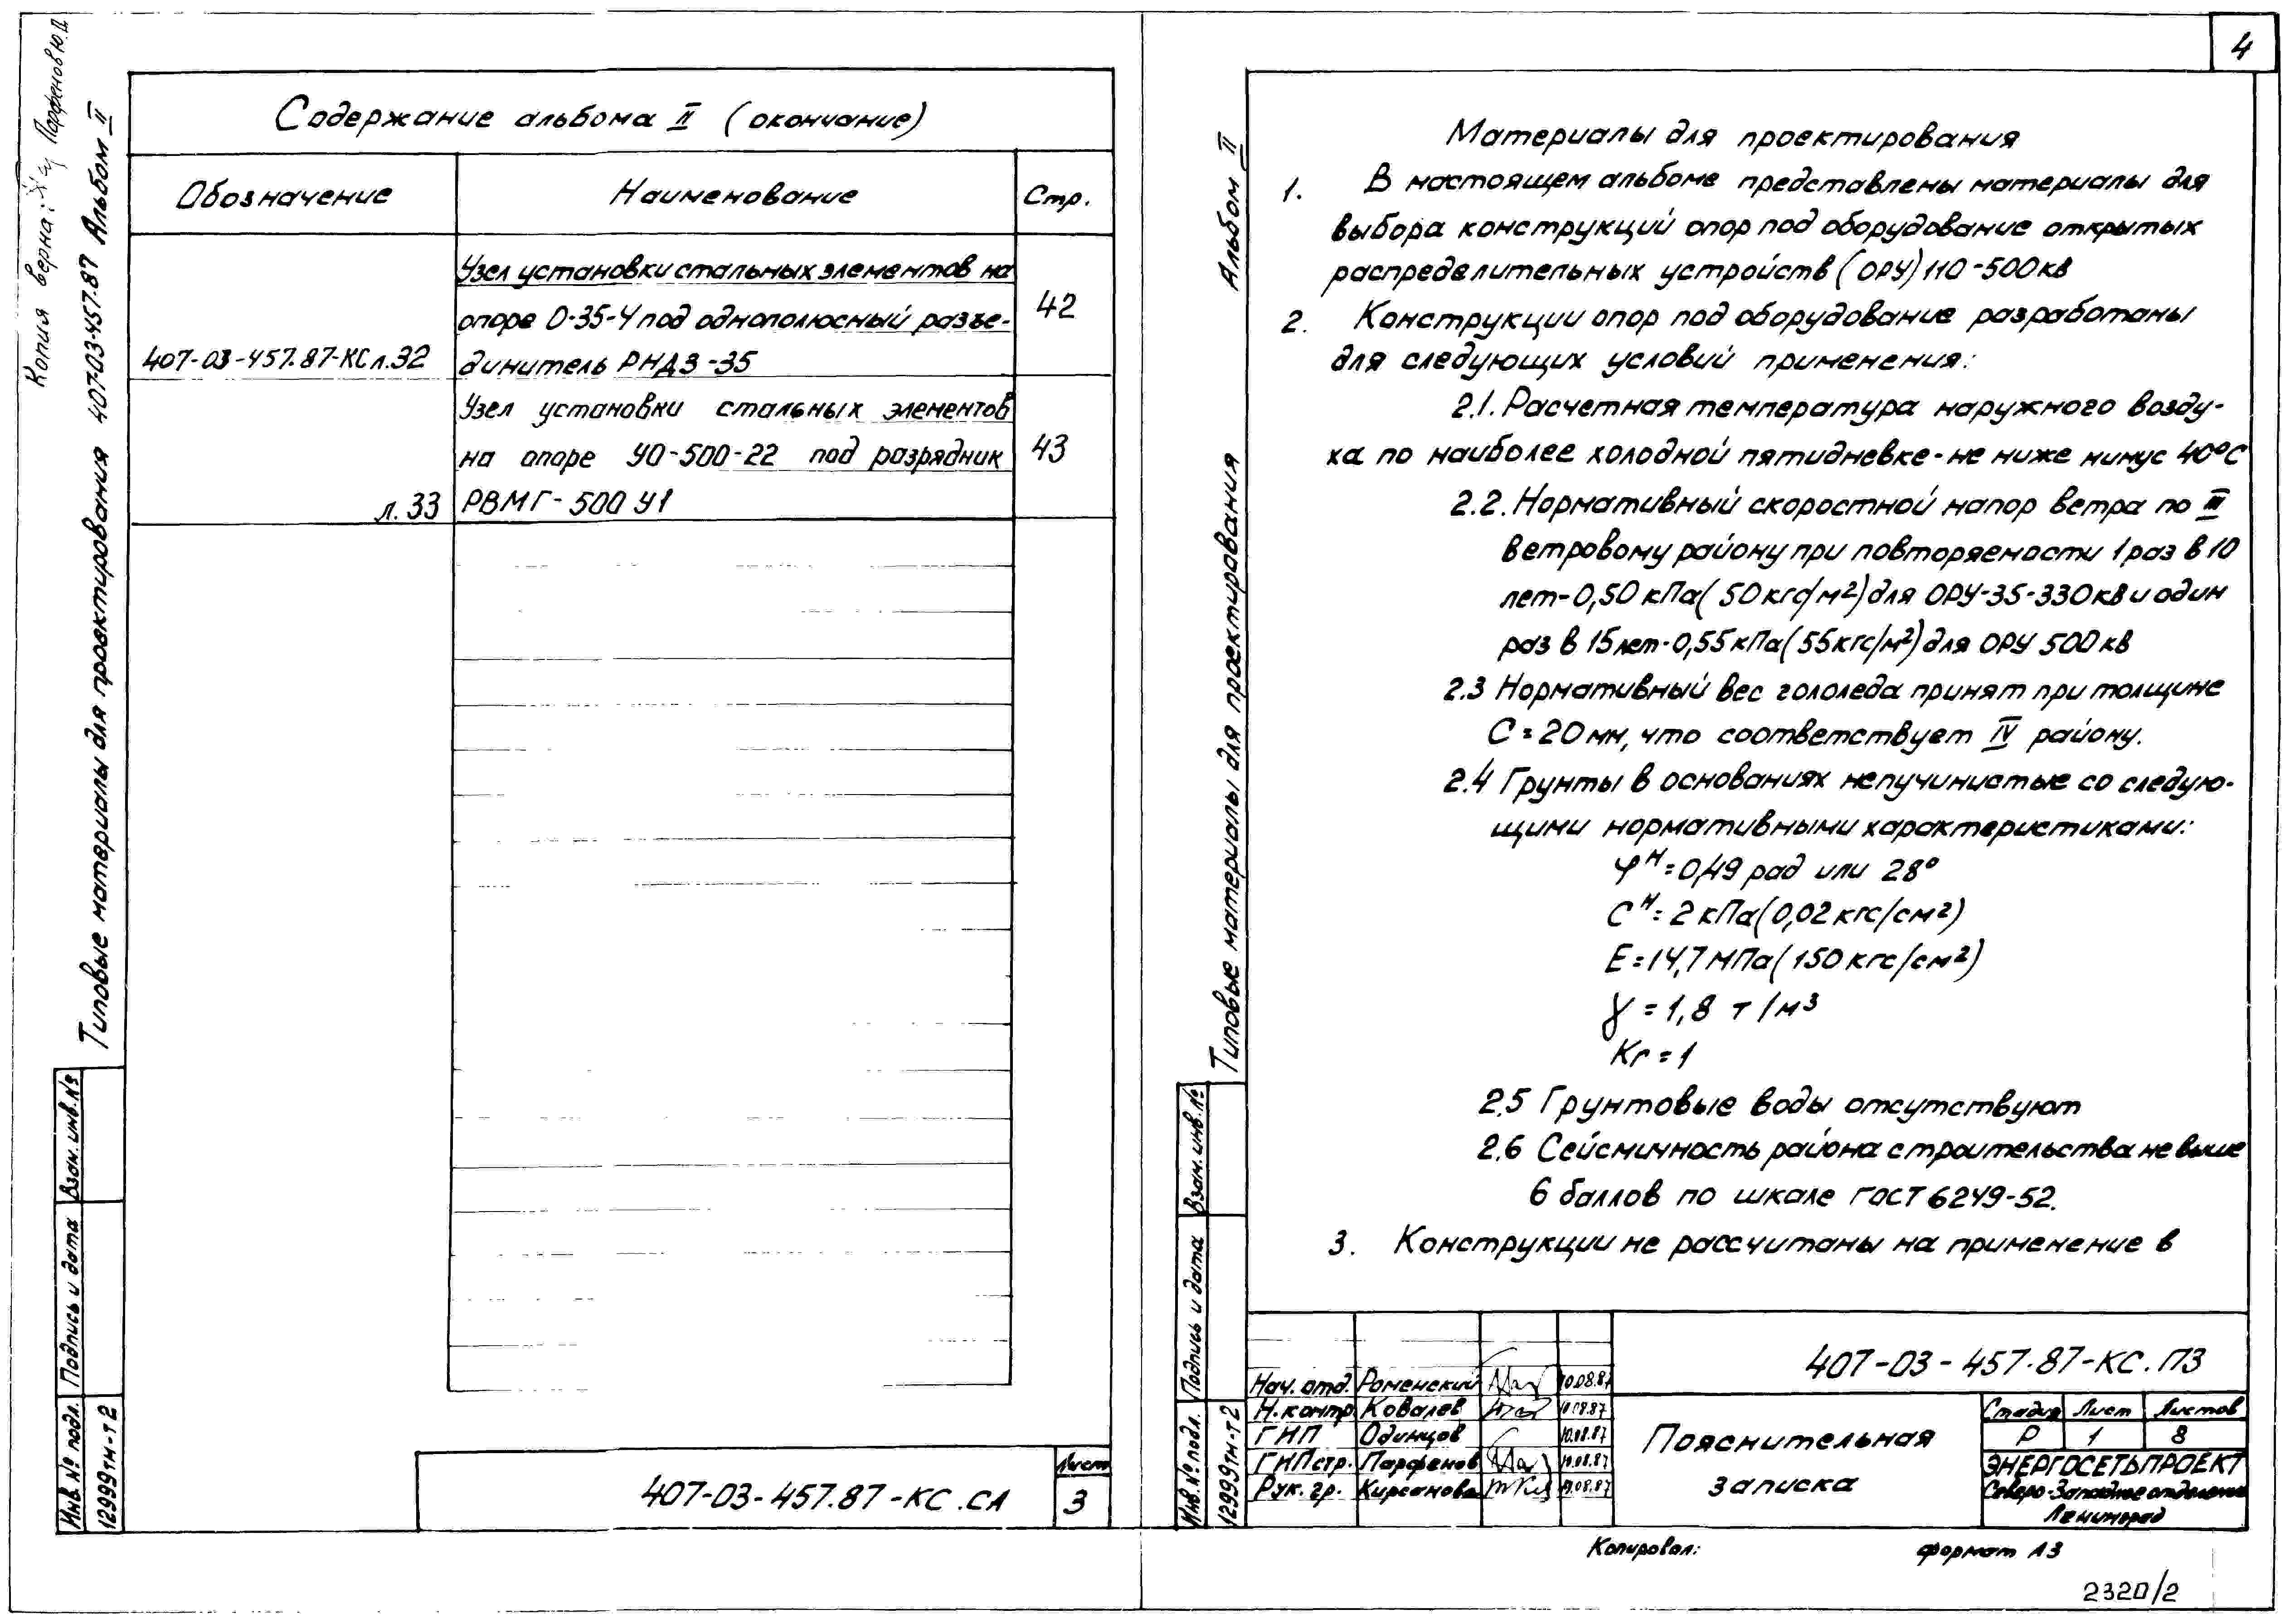 4
Копия верна: Парфенов Ю.Д.
Типовые материалы для проектирования 407-03-457.87 Альбом II
Содержание альбома II (окончание)
Обозначение Наименование Стр.
Узел установки стальных элементов на
опоре О-35-4 под однополюсный разъе-
407-03-457.87-КС л.32 динитель РНДЗ-35 42
Узел установки стальных элементов
на опоре УО-500-22 под разрядник 43
л.33 РВМГ-500 У1
Взам. инв. №
Подпись и дата
Инв. № подл.
12999тм-т2
407-03-457.87-КС.СА
Лист
3
Типовые материалы для проектирования Альбом II
Материалы для проектирования
1. В настоящем альбоме представлены материалы для
выбора конструкций опор под оборудование открытых
распределительных устройств (ОРУ) 110-500кв
2. Конструкции опор под оборудование разработаны
для следующих условий применения:
2.1. Расчетная температура наружного возду-
ха по наиболее холодной пятидневке - не ниже минус 40°С
2.2. Нормативный скоростной напор ветра по III
ветровому району при повторяемости 1 раз в 10
лет-0,50 кПа (50 кгс/м²) для ОРУ-35-330кв и один
раз в 15 лет-0,55 кПа (55 кгс/м²) для ОРУ 500 кв
2.3 Нормативный вес гололеда принят при толщине
С=20мм, что соответствует IV району.
2.4 Грунты в основаниях непучинистые со следую-
щими нормативными характеристиками:
φᴴ=0,49 рад или 28°
Сᴴ=2 кПа (0,02 кгс/см²)
Е=14,7 МПа (150 кгс/см²)
γ = 1,8 т/м³
Кг = 1
2.5 Грунтовые воды отсутствуют
2.6 Сейсмичность района строительства не выше
6 баллов по шкале ГОСТ 6249-52.
3. Конструкции не рассчитаны на применение в
Взам. инв. №
Подпись и дата
Инв. № подл.
12999тм-т2
407-03-457.87-КС.ПЗ
Нач. отд. Роменский 10.08.87
Н. контр. Ковалев 10.08.87
ГИП Одинцов 10.08.87
ГИПстр. Парфенов 10.08.87
Рук. гр. Кирсанова 10.08.87
Пояснительная
записка
Стадия Лист Листов
Р 1 8
ЭНЕРГОСЕТЬПРОЕКТ
Северо-Западное отделение
Ленинград
Копировал: формат А3
2320/2